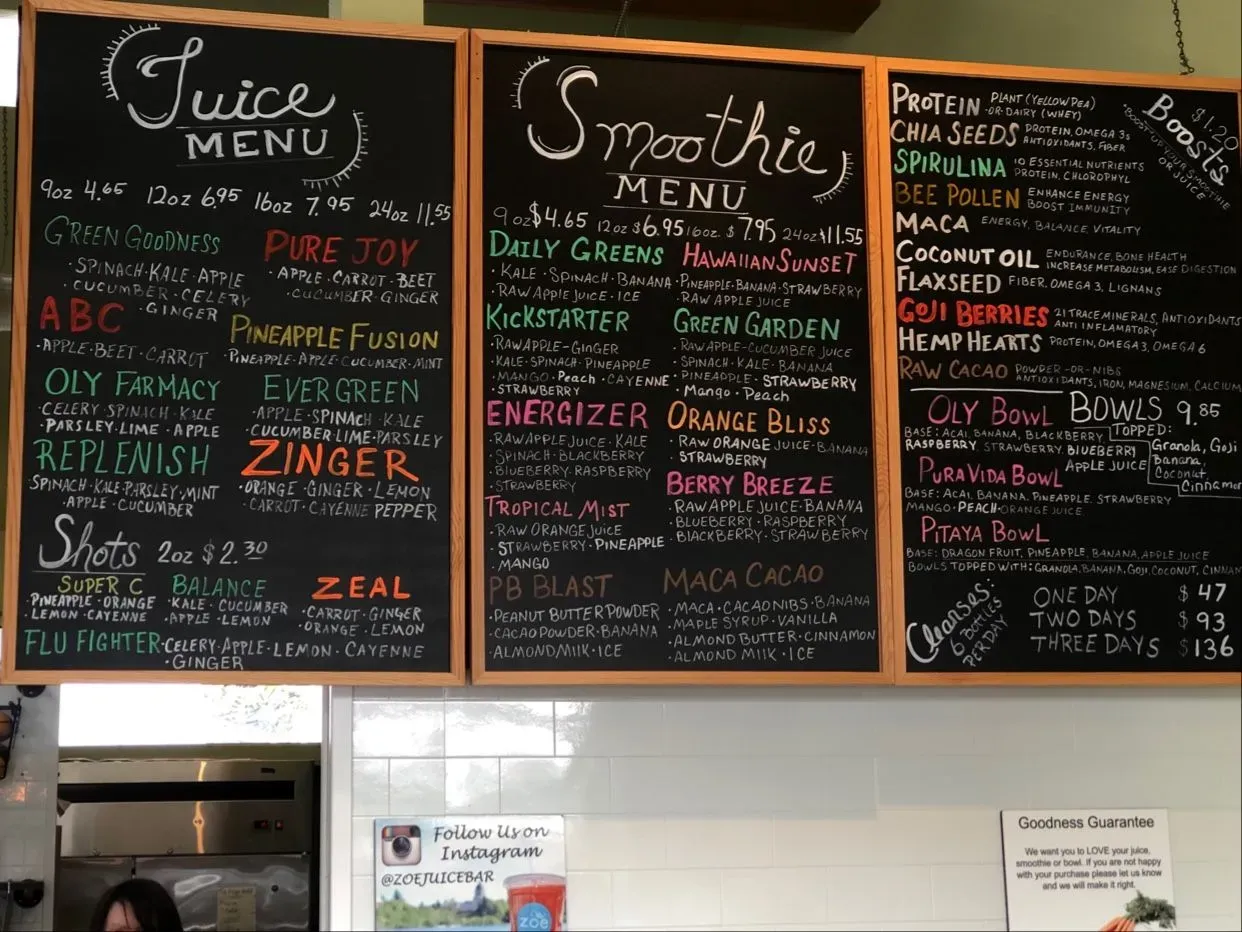 Juice
MENU
9oz 4.65 12oz 6.95 16oz 7.95 24oz 11.55
GREEN GOODNESS
· SPINACH · KALE · APPLE
· CUCUMBER · CELERY
· GINGER
PURE JOY
· APPLE · CARROT · BEET
· CUCUMBER · GINGER
ABC
· APPLE · BEET · CARROT
PINEAPPLE FUSION
· PINEAPPLE · APPLE · CUCUMBER · MINT
OLY FARMACY
· CELERY · SPINACH · KALE
· PARSLEY · LIME · APPLE
EVERGREEN
· APPLE · SPINACH · KALE
· CUCUMBER · LIME · PARSLEY
REPLENISH
SPINACH · KALE · PARSLEY · MINT
· APPLE · CUCUMBER
ZINGER
· ORANGE · GINGER · LEMON
· CARROT · CAYENNE PEPPER
Shots 2oz $2.30
SUPER C
· PINEAPPLE · ORANGE
· LEMON · CAYENNE
BALANCE
· KALE · CUCUMBER
· APPLE · LEMON
ZEAL
· CARROT · GINGER
· ORANGE · LEMON
FLU FIGHTER · CELERY · APPLE · LEMON · CAYENNE
· GINGER
Smoothie
MENU
9 oz $4.65 12oz $6.95 16oz. $7.95 24oz $11.55
DAILY GREENS
· KALE · SPINACH · BANANA
· RAW APPLE JUICE · ICE
HAWAIIAN SUNSET
· PINEAPPLE · BANANA · STRAWBERRY
· RAW APPLE JUICE
KICKSTARTER
· RAW APPLE-GINGER
· KALE · SPINACH · PINEAPPLE
· MANGO · Peach · CAYENNE
· STRAWBERRY
GREEN GARDEN
· RAW APPLE-CUCUMBER JUICE
· SPINACH · KALE · BANANA
· PINEAPPLE · STRAWBERRY
Mango · Peach
ENERGIZER
· RAW APPLE JUICE · KALE
· SPINACH · BLACKBERRY
· BLUEBERRY · RASPBERRY
· STRAWBERRY
ORANGE BLISS
· RAW ORANGE JUICE · BANANA
· STRAWBERRY
BERRY BREEZE
· RAW APPLE JUICE · BANANA
· BLUEBERRY · RASPBERRY
· BLACKBERRY · STRAWBERRY
TROPICAL MIST
· RAW ORANGE JUICE
· STRAWBERRY · PINEAPPLE
· MANGO
PB BLAST
· PEANUT BUTTER POWDER
· CACAO POWDER · BANANA
· ALMOND MILK · ICE
MACA CACAO
· MACA · CACAO NIBS · BANANA
· MAPLE SYRUP · VANILLA
· ALMOND BUTTER · CINNAMON
· ALMOND MILK · ICE
Boosts $1.20
"BOOST" UP YOUR SMOOTHIE
OR JUICE
PROTEIN PLANT (YELLOW PEA)
-OR- DAIRY (WHEY)
CHIA SEEDS PROTEIN, OMEGA 3s
ANTIOXIDANTS, FIBER
SPIRULINA 10 ESSENTIAL NUTRIENTS
PROTEIN, CHLOROPHYL
BEE POLLEN ENHANCE ENERGY
BOOST IMMUNITY
MACA ENERGY, BALANCE, VITALITY
COCONUT OIL ENDURANCE, BONE HEALTH
INCREASE METABOLISM, EASE DIGESTION
FLAXSEED FIBER, OMEGA 3, LIGNANS
GOJI BERRIES 21 TRACE MINERALS, ANTIOXIDANTS
ANTI INFLAMATORY
HEMP HEARTS PROTEIN, OMEGA 3, OMEGA 6
RAW CACAO POWDER -OR- NIBS
ANTIOXIDANTS, IRON, MAGNESIUM, CALCIUM
BOWLS 9.85
OLY BOWL
BASE: ACAI, BANANA, BLACKBERRY
RASPBERRY STRAWBERRY BLUEBERRY
APPLE JUICE
TOPPED:
Granola, Goji
Banana,
Coconut,
Cinnamon
PURA VIDA BOWL
BASE: ACAI, BANANA, PINEAPPLE, STRAWBERRY
MANGO · PEACH · ORANGE JUICE
PITAYA BOWL
BASE: DRAGON FRUIT, PINEAPPLE, BANANA, APPLE JUICE
BOWLS TOPPED WITH: GRANOLA, BANANA, GOJI, COCONUT, CINNAM
Cleanses:
6 BOTTLES
PER DAY
ONE DAY $47
TWO DAYS $93
THREE DAYS $136
Follow Us on
Instagram
@ZOEJUICEBAR
zoe
Goodness Guarantee
We want you to LOVE your juice,
smoothie or bowl. If you are not happy
with your purchase please let us know
and we will make it right.